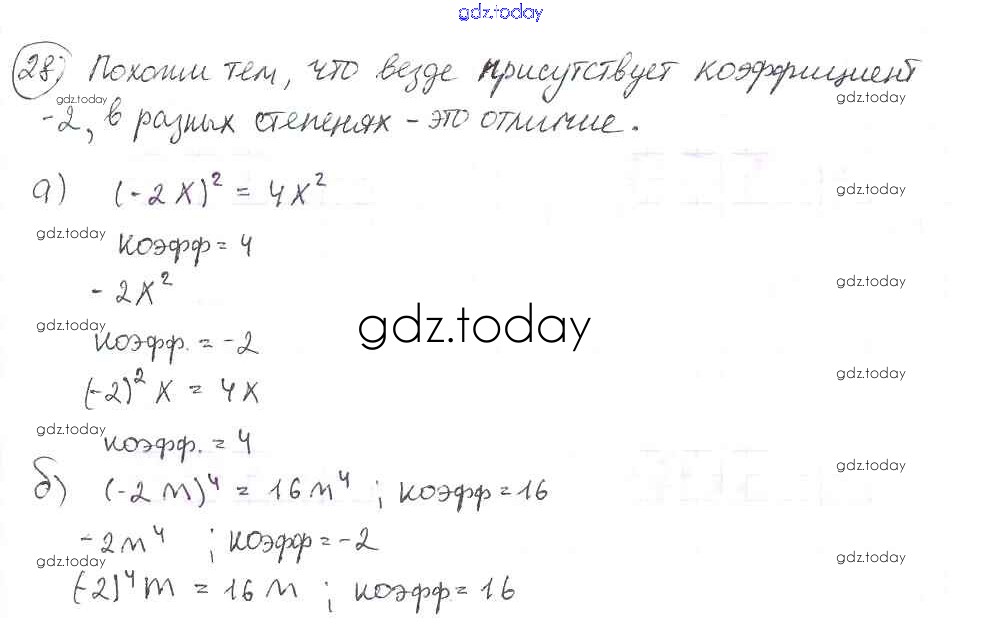 gdz.today
28) Похожи тем, что везде присутствует коэффициент
gdz.today gdz.today
-2, в разных степенях - это отличие.
а) (-2x)² = 4x² gdz.today
gdz.today
коэфф = 4
-2x² gdz.today
gdz.today gdz.today
коэфф. = -2
(-2)² x = 4x gdz.today
gdz.today
коэфф. = 4
gdz.today
б) (-2m)⁴ = 16m⁴ ; коэфф = 16
-2m⁴ ; коэфф = -2
gdz.today gdz.today
(-2)⁴m = 16m ; коэфф = 16